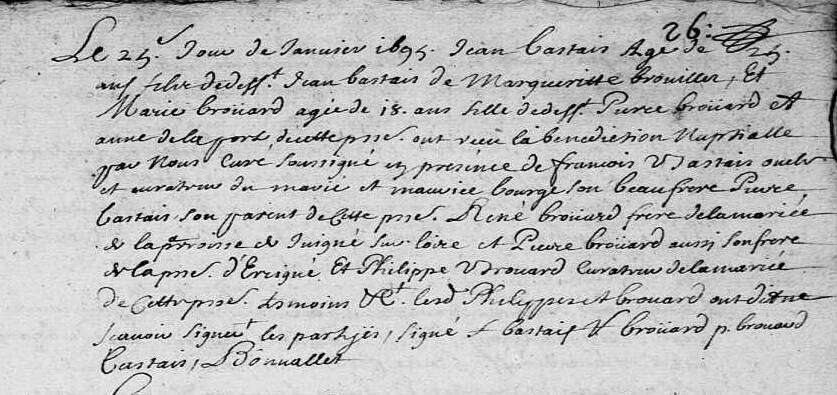 26:
Le 25.e Jour de Janvier 1695. Jean bastais Agé de 25.
ans filz dedeff.t Jean bastais de Margueritte brouiller, Et
Marie broüard agée de 18. ans fille dedeff.t Pierre broüard et
anne de la port decette psse. ont receu la benediction Nuptialle
par Nous Curé, Soussigné en présence de francois
et curateur du marié et maurice bourge son beaufrere Pierre
bastais son parent de Cette psse. René broüard frere delamariée
de la parroisse de Juigné sur loire et Pierre broüard aussi sonfrere
de la psse. d'Erigné Et Philippe curateur delamariée
de Cette psse. tesmoins lesd Philippes et broüard ont dit ne
scavoir signer les parties, signé f bastais broüard p. broüard
bastais, Bonvallet